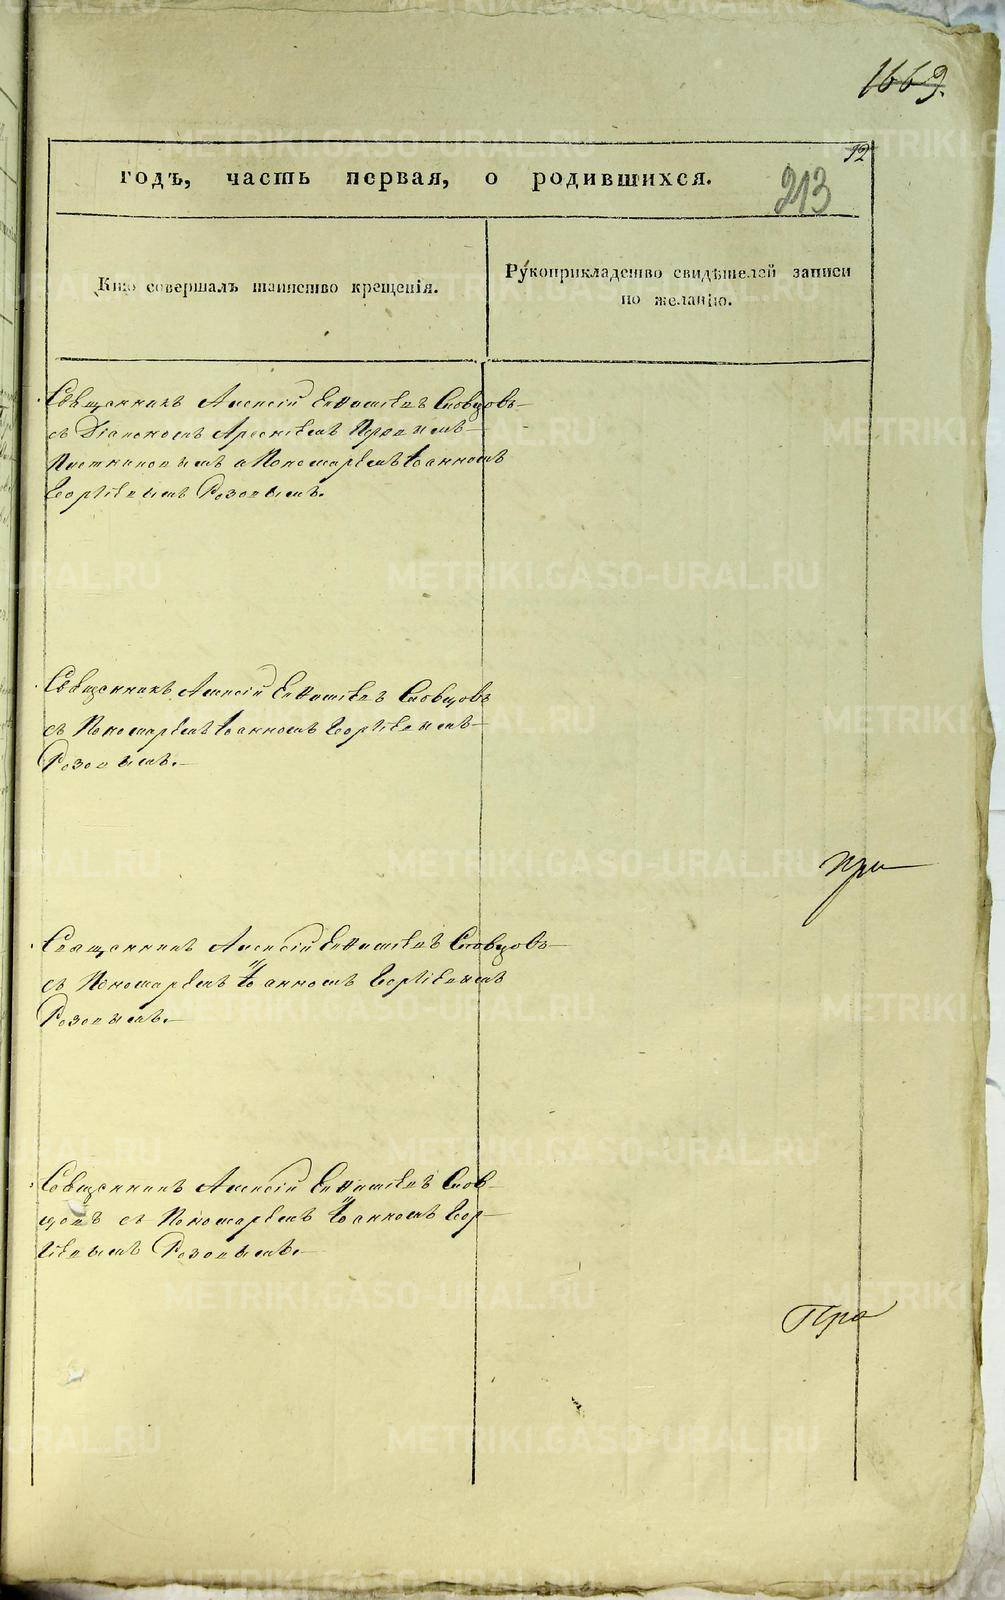 1663.
12
213
годъ, часть первая, о родившихся.
Кто совершалъ таинство крещенія.
Рукоприкладство свидѣтелей записи
по желанію.
Священникъ Алексій Евѳиміевъ Словцовъ
съ Діакономъ Арсеніемъ
и Пономаремъ Іоанномъ
Георгіевымъ Розовымъ.
Священникъ Алексій Евѳиміевъ Словцовъ
съ Пономаремъ Іоанномъ Георгіевымъ
Розовымъ.
При
Священникъ Алексій Евѳиміевъ Словцовъ
съ Пономаремъ Іоанномъ Георгіевымъ
Розовымъ.
Священникъ Алексій Евѳиміевъ Слов-
цовъ съ Пономаремъ Іоанномъ Геор-
гіевымъ Розовымъ.
METRIKI.GASO-URAL.RU